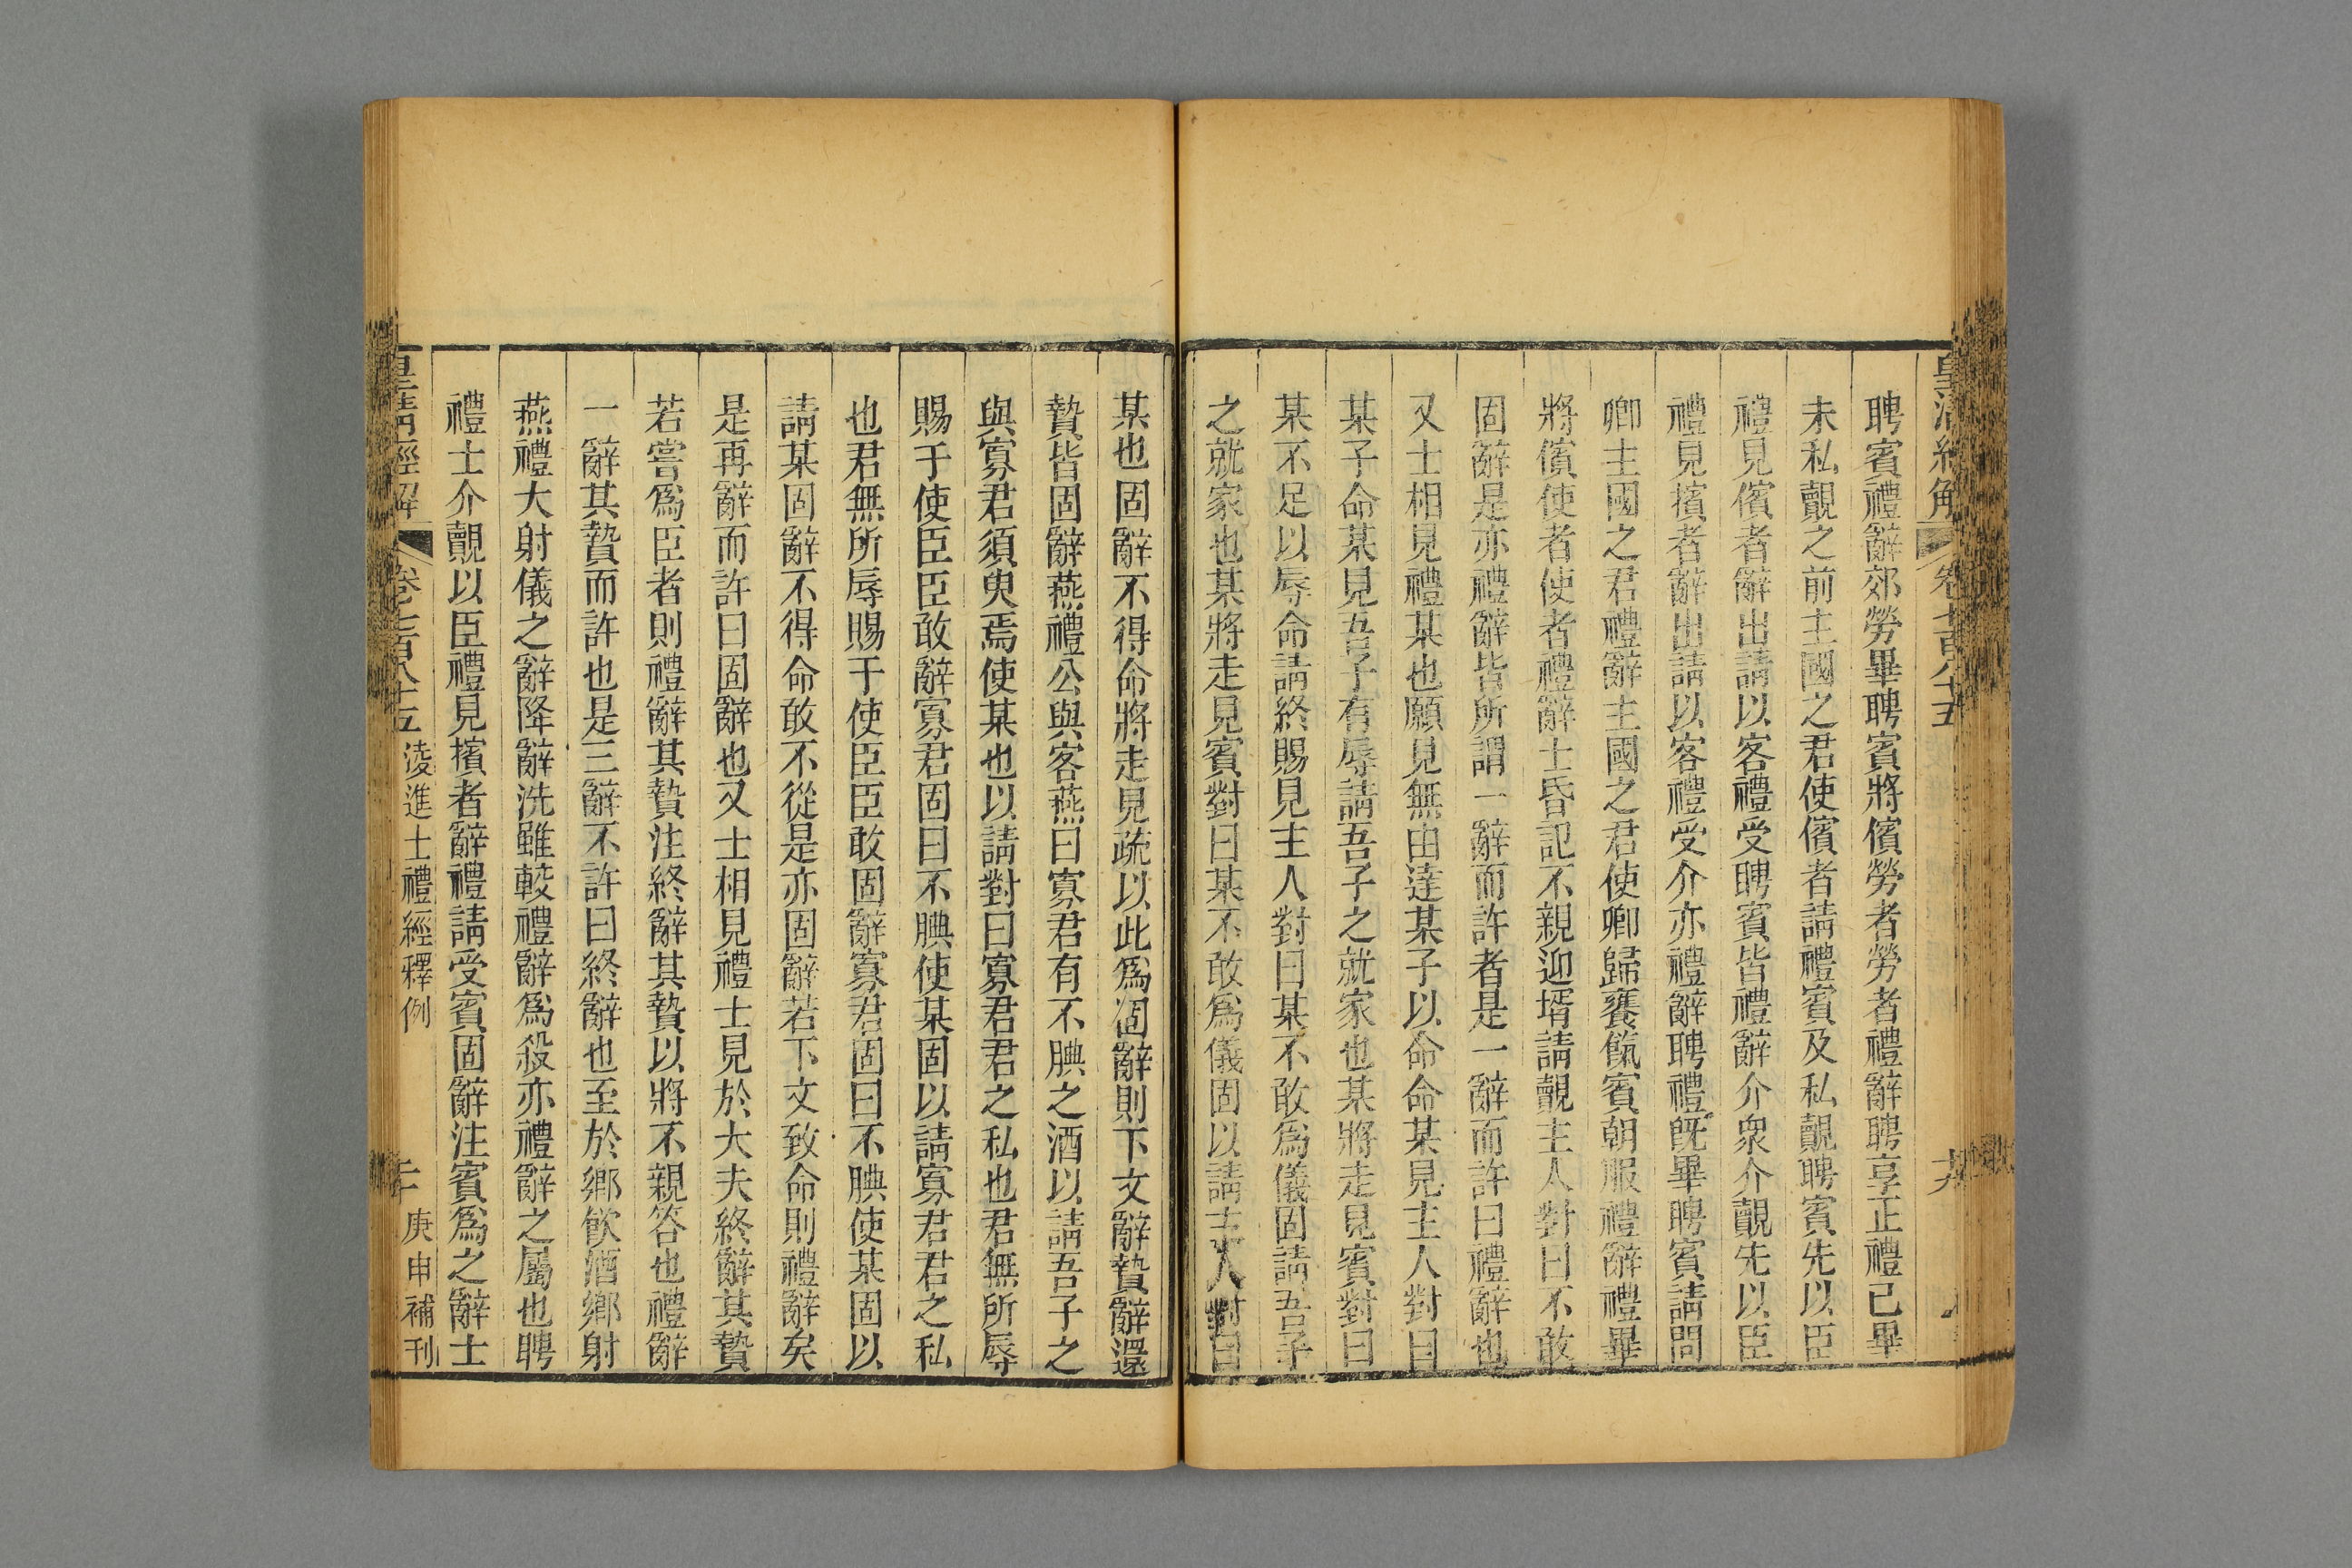 皇清經解 卷七百八十五
聘賓禮辭郊勞畢聘賓將儐勞者勞者禮辭聘享正禮已畢
未私覿之前主國之君使儐者請禮賓及私覿聘賓先以臣
禮見儐者辭出請以客禮受聘賓皆禮辭介衆介覿先以臣
禮見擯者辭出請以客禮受介亦禮辭聘禮既畢聘賓請問
卿主國之君禮辭主國之君使卿歸饔餼賓朝服禮辭禮畢
將儐使者使者禮辭士昏記不親迎壻請覿主人對曰不敢
固辭是亦禮辭皆所謂一辭而許者是一辭而許曰禮辭也
又士相見禮某也願見無由達某子以命命某見主人對曰
某子命某見吾子有辱請吾子之就家也某將走見賓對曰
某不足以辱命請終賜見主人對曰某不敢爲儀固請吾子
之就家也某將走見賓對曰某不敢爲儀固以請主人對曰
某也固辭不得命將走見疏以此爲固辭則下文辭贄辭還
贄皆固辭燕禮公與客燕曰寡君有不腆之酒以請吾子之
與寡君須臾焉使某也以請對曰寡君君之私也君無所辱
賜于使臣臣敢辭寡君固曰不腆使某固以請寡君君之私
也君無所辱賜于使臣臣敢固辭寡君固曰不腆使某固以
請某固辭不得命敢不從是亦固辭若下文致命則禮辭矣
是再辭而許曰固辭也又士相見禮士見於大夫終辭其贄
若嘗爲臣者則禮辭其贄注終辭其贄以將不親答也禮辭
一辭其贄而許也是三辭不許曰終辭也至於鄉飲酒鄉射
燕禮大射儀之辭降辭洗雖較禮辭爲殺亦禮辭之屬也聘
禮士介覿以臣禮見擯者辭禮請受賓固辭注賓爲之辭士
皇清經解 卷七百八十五 淩進士禮經釋例 庚申補刊